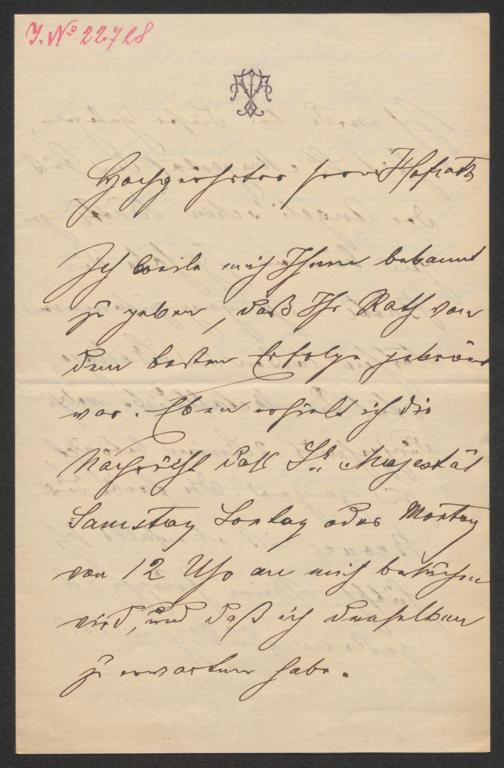 J. No 22728
Hochgeehrter Herr Hofrath
Ich beeile mich Ihnen bekannt
zu geben, daß Ihr Rath von
dem besten Erfolge gekrönt
war. Eben erhielt ich die
Nachricht daß Se. Majestät
Samstag Sontag oder Montag
von 12 Uhr an mich besuchen
wird, und daß ich denselben
zu erwarten habe.